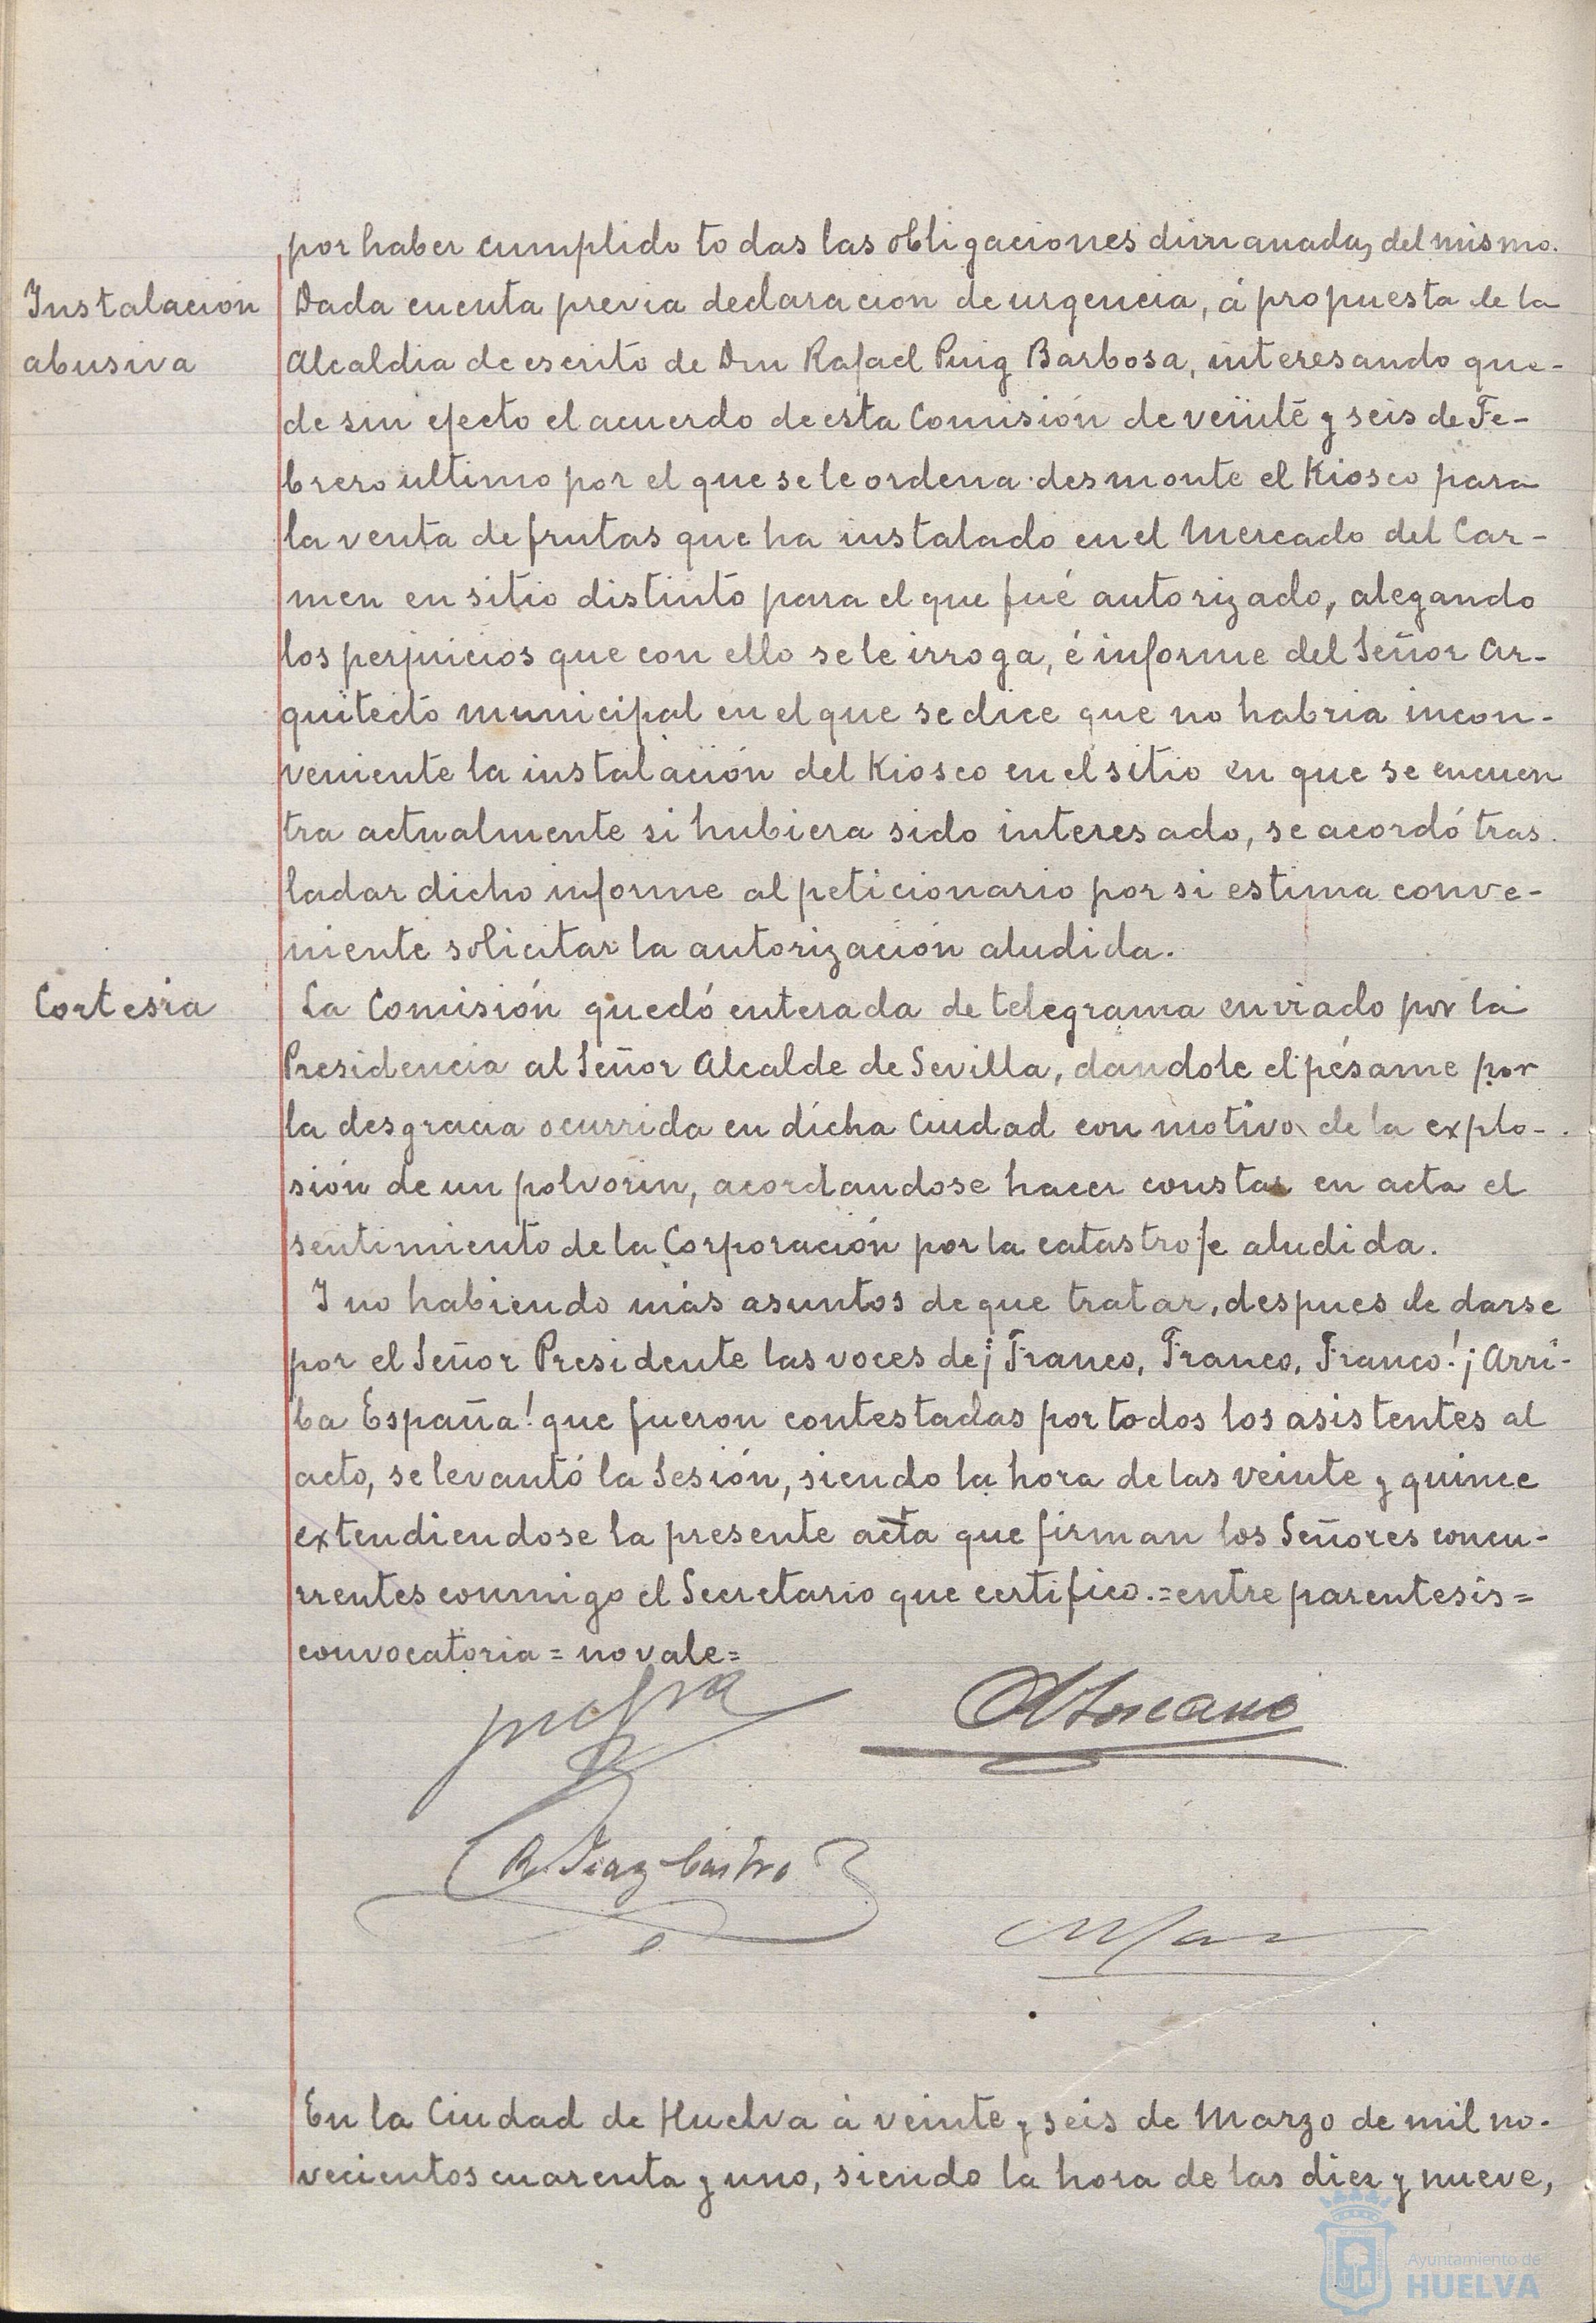 por haber cumplido todas las obligaciones dimanadas del mismo.
Instalación
abusiva
Dada cuenta previa declaracion de urgencia, á propuesta de la
Alcaldia de escrito de Don Rafael Puig Barbosa, interesando que-
de sin efecto el acuerdo de esta Comisión de veinte y seis de Fe-
brero ultimo por el que se le ordena desmonte el Kiosco para
la venta de frutas que ha instalado en el Mercado del Car-
men en sitio distinto para el que fué autorizado, alegando
los perjuicios que con ello se le irroga, é informe del Señor Ar-
quitecto municipal en el que se dice que no habria incon-
veniente la instalación del Kiosco en el sitio en que se encuen
tra actualmente si hubiera sido interesado, se acordó tras-
ladar dicho informe al peticionario por si estima conve-
niente solicitar la autorización aludida.
Cortesia
La Comisión quedó enterada de telegrama enviado por la
Presidencia al Señor Alcalde de Sevilla, dandole el pésame por
la desgracia ocurrida en dicha Ciudad con motivo de la explo-
sión de un polvorin, acordandose hacer constar en acta el
sentimiento de la Corporación por la catastrofe aludida.
Y no habiendo más asuntos de que tratar, despues de darse
por el Señor Presidente las voces de ¡Franco, Franco, Franco! ¡Arri-
ba España! que fueron contestadas por todos los asistentes al
acto, se levantó la Sesión, siendo la hora de las veinte y quince
extendiendose la presente acta que firman los Señores concu-
rrentes conmigo el Secretario que certifico.=entre parentesis=
convocatoria = no vale=
A Toscano
R. Diaz Castro
En la Ciudad de Huelva á veinte y seis de Marzo de mil no-
vecientos cuarenta y uno, siendo la hora de las diez y nueve,
Ayuntamiento de
HUELVA